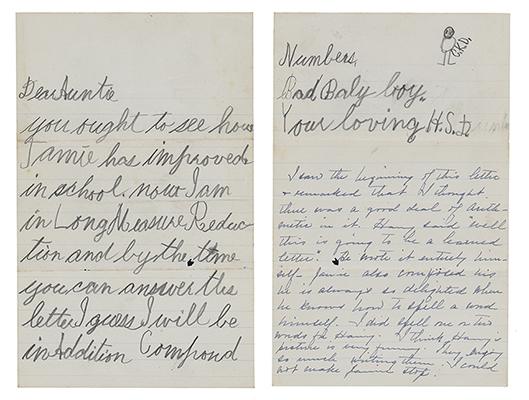 Dear Aunta
you ought to see how
Jamie has improved
in school. now I am
in Long Measure Reduc
tion and by the time
you can answer this
letter I guess I will be
in Addition Compound
C.K.D.
Numbers.
Bad Baby boy.
Your loving H.S.D.
I saw the beginning of this letter
& remarked that I thought
there was a good deal of Arith-
metic in it. Harry said "well
this is going to be a learned
letter." He wrote it entirely him
self- Jamie also composed his
he is always so delighted when
he knows how to spell a word
himself. I did spell one or two
words for Harry. I think Harry's
picture is very funny. They enjoy
so much writing them. I could
not make Jamie stop.